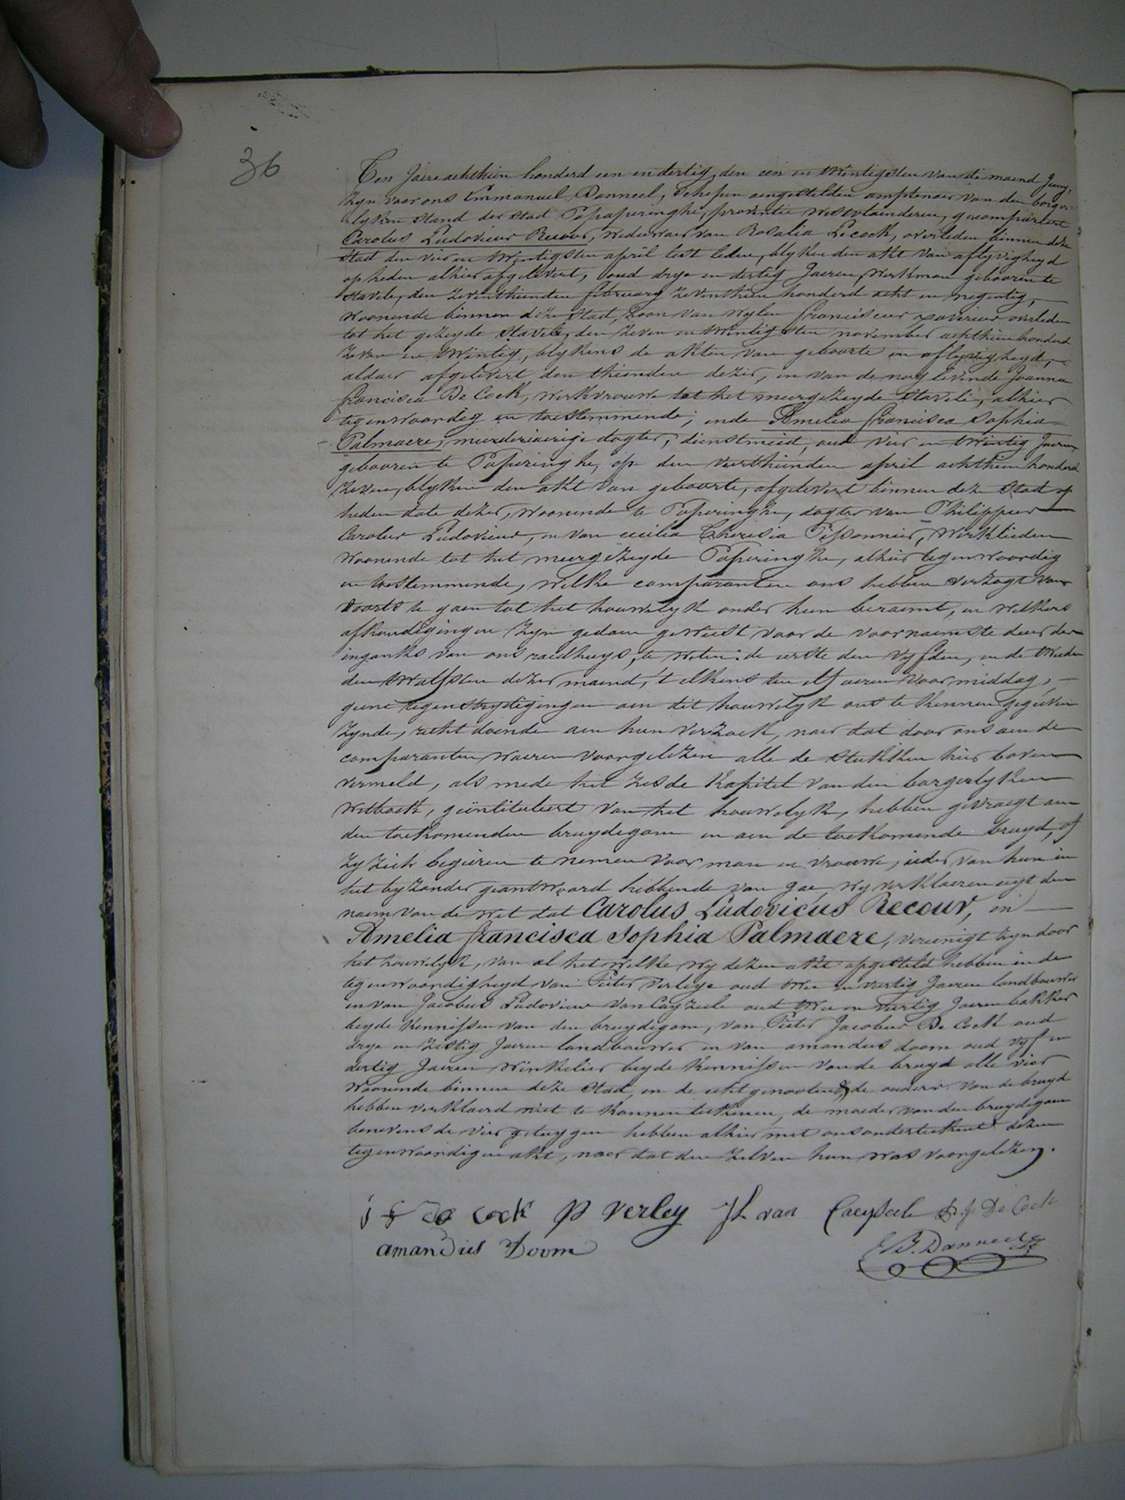 36
Ten Jaere achthien honderd een en dertig, den een en twintigsten van de maend Juny,
zyn voor ons Emmanuel Danneel, schepen aengestelden amptenaer van den borger-
lyken stand der stad Poperinghe, provintie Westvlaenderen, gecompareert
Carolus Ludovicus Recour, weduwaer van Rosalia Lecock, overleden binnen deze
stad den vier en twintigsten april lest leden, blyken den akt van aflyvigheyd
op heden alhier afgelevert, oud drye en dertig Jaeren, werkman gebooren te
Stavele, den zeventhienden february zeventhien honderd acht en negentig,
woonende binnen deze stad, zoon van wylen franciscus xaverius overleden
tot het gezeyde Stavele, den zeven en twintigsten november achthien honderd
zeven en twintig, blykens de akten van geboorte en aflyvigheyd,
aldaer afgelevert den thienden dezer, en van de nog levende Joanna
francisca De Cock, werkvrouw tot het meergezeyde Stavele, alhier
tegenwoordig en toestemmende; ende Amelia francisca Sophia
Palmaere, meerderjaerige dogter, dienstmeid, oud vier en twintig Jaeren,
gebooren te Poperinghe, op den vierthienden april achthien honderd
zeven, blyken den akt van geboorte, afgelevert binnen deze stad op
heden date dezer, woonende te Poperinghe, dogter van Philippus
Carolus Ludovicus, en van cecilia Theresia Pissonnier, werklieden
woonende tot het meergezeyde Poperinghe, alhier tegenwoordig
en toestemmende, welke comparanten ons hebben verzogt van
voorts te gaen tot het houwelyk onder hun beraemt, en welkers
afkondigingen zyn gedaen geweest voor de voornaemste deur der
ingank van ons raedhuys, te weten: de eerste den vyfden, en de tweede
den twalfsten dezer maend, telkens ten elf ueren voormiddag,
geene tegenstrydigingen aen dit houwelyk ons te kennen gegeven
zynde, recht doende aen hun verzoek, naer dat door ons aen de
comparanten waeren voorgelezen alle de stukken hier boven
vermeld, als mede het zesde kapitel van den borgerlyken
wetboek, geïntituleert van het houwelyk, hebben gevraegt aen
den toekomenden bruydegom en aen de toekomende bruyd, of
zy zich begeeren te nemen voor man en vrouwe, ieder van hun in
het byzonder geantwoord hebbende van Jae, wy verklaeren uyt den
naem van de wet dat Carolus Ludovicus Recour, en
Amelia francisca Sophia Palmaere, vereenigt zyn door
het houwelyk, van al het welke wy dezen akte opgesteld hebben in de
tegenwoordigheyd van Pieter Verleye oud twee en veertig Jaeren landbouwer
en van Jacobus Ludovicus Van Cayzeele oud twee en veertig Jaeren bakker
beyde kennissen van den bruydigom, van Pieter Jacobus De Cock oud
drye en zestig Jaeren landbouwer en van amandus doom oud vyf en
dertig Jaeren winkelier beyde kennissen van de bruyd alle vier
woonende binnen deze stad, en de echtgenooten de ouders van de bruyd
hebben verklaerd niet te konnen teekenen, de moeder van den bruydigom
benevens de vier getuygen hebben alhier met ons onderteekent dezen
tegenwoordigen akt, naer dat den zelven hun was voorgelezen.
j f De cock P verley JL van Caeyseele P. J. De Cock
amandus Doom E. B. Danneel